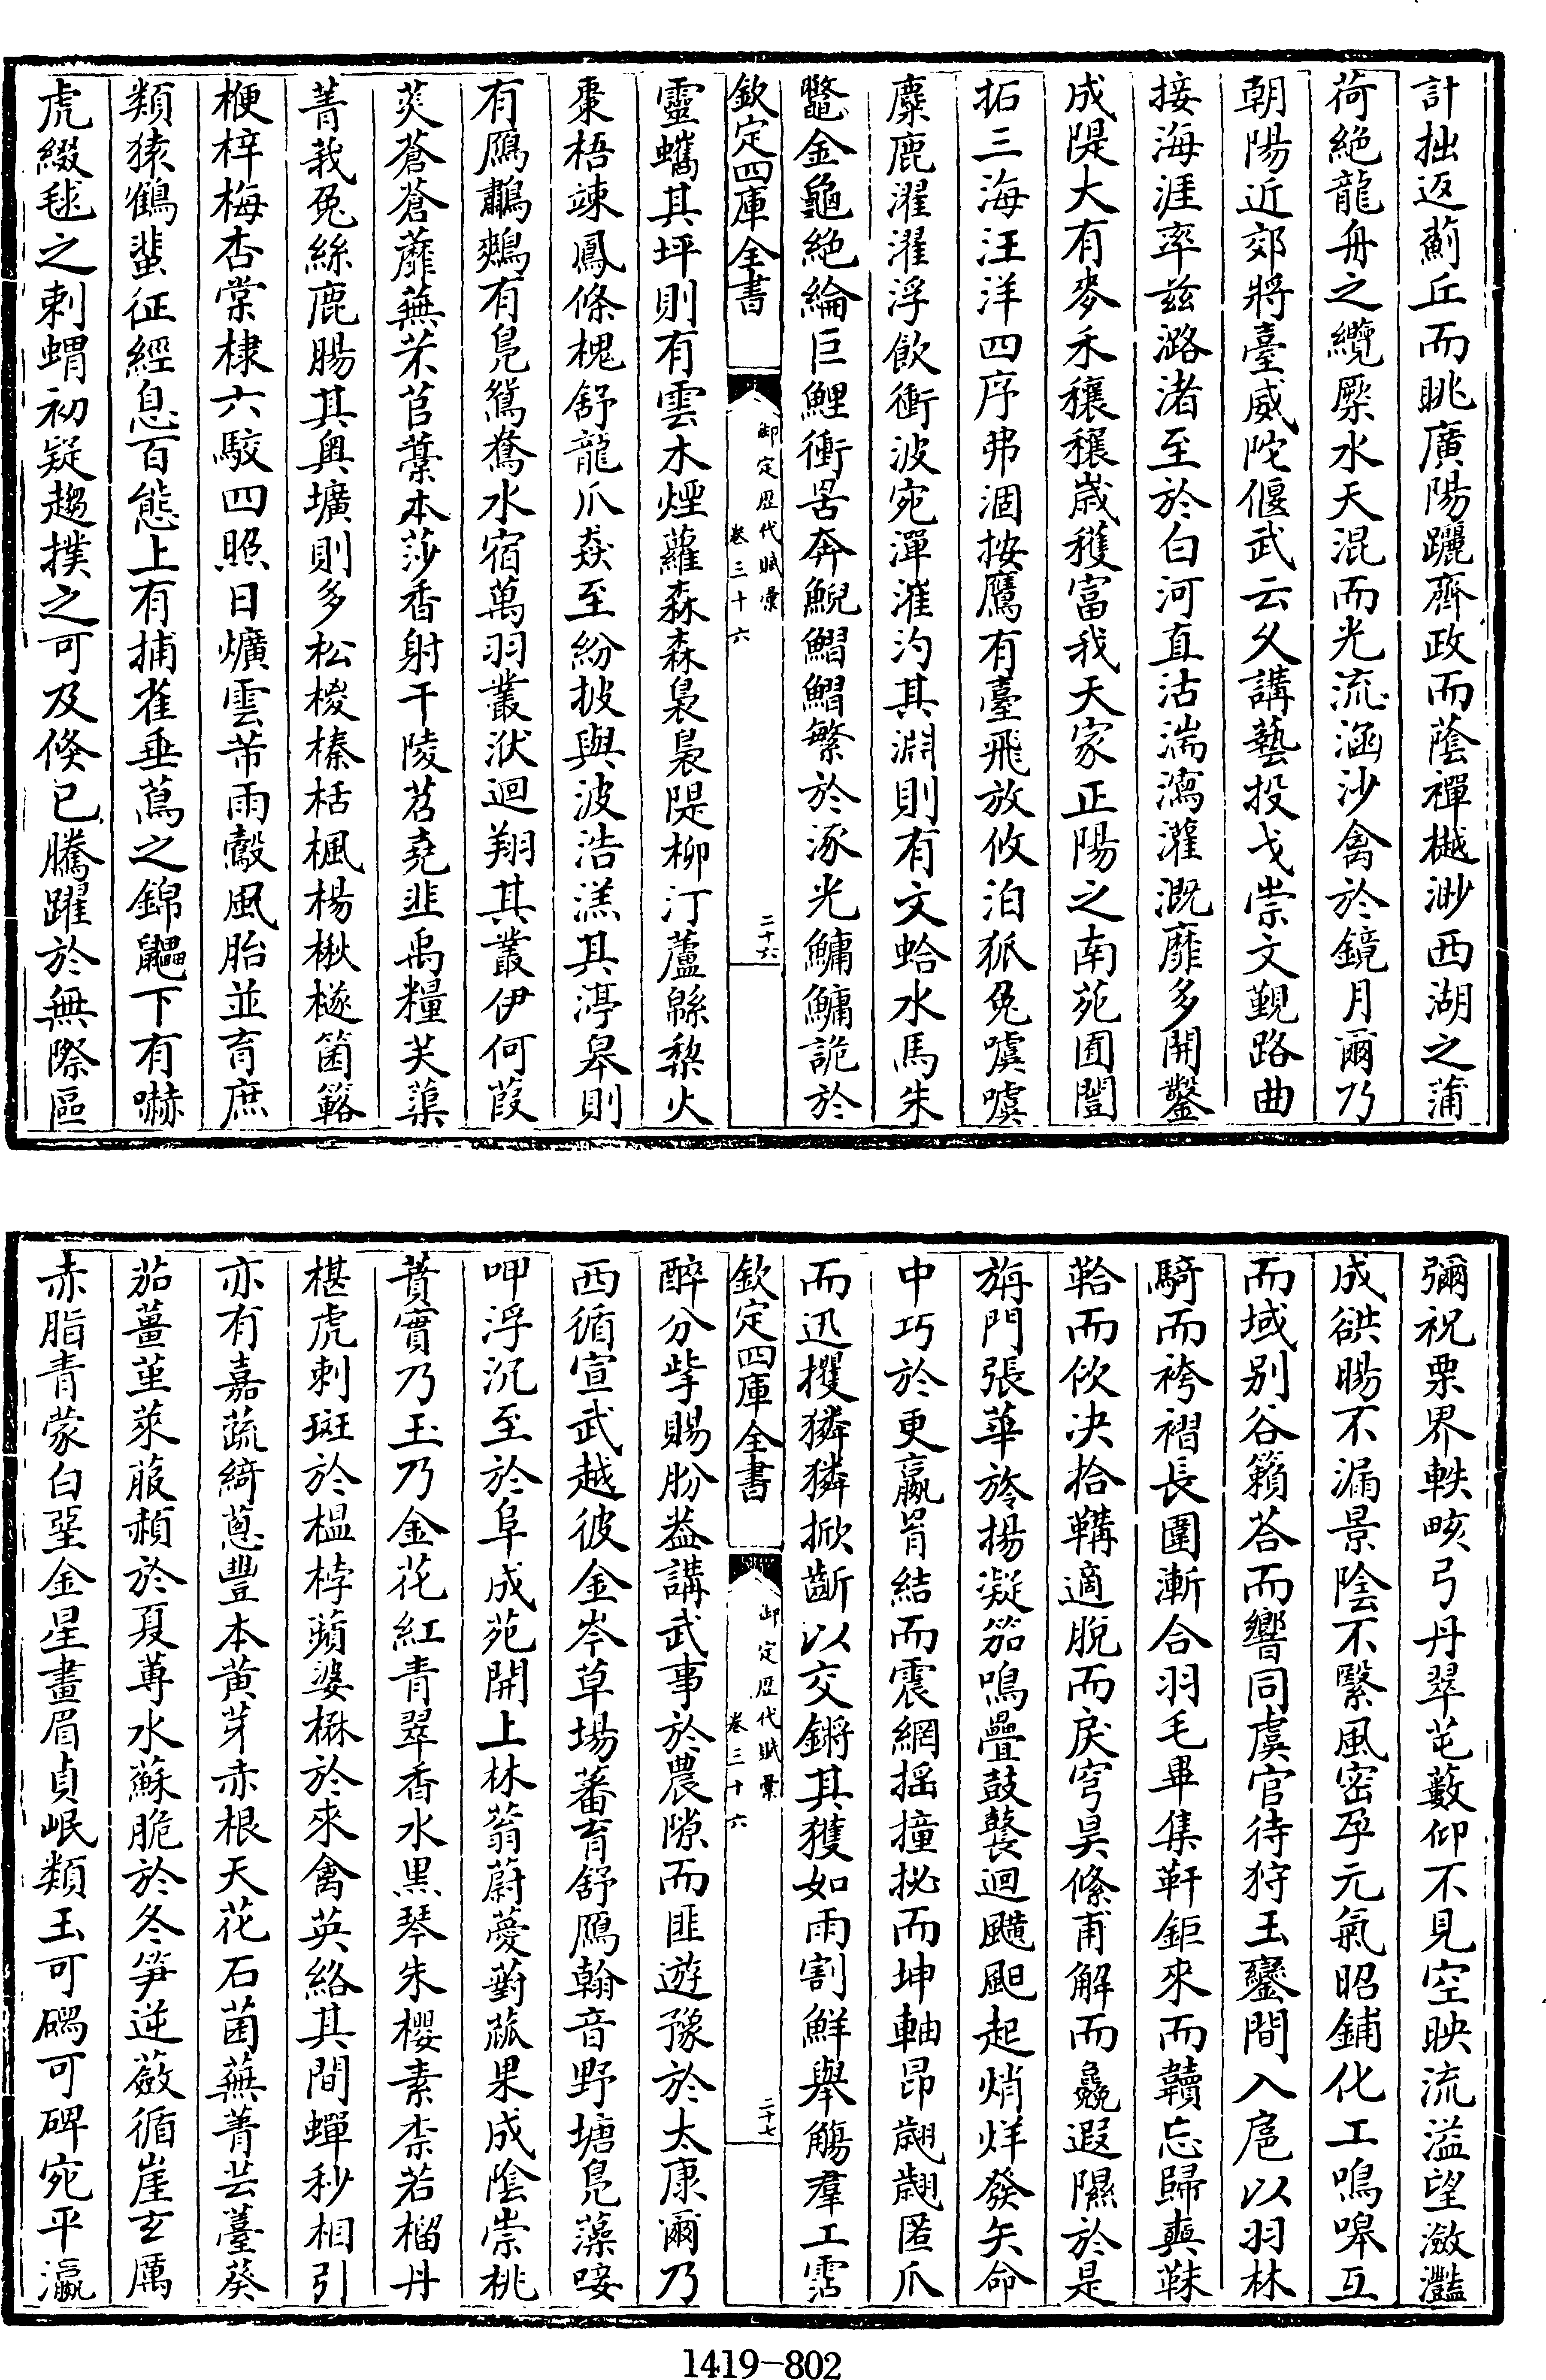 計拙返薊丘而眺廣陽躧齊政而蔭禪樾渺西湖之蒲
荷絶龍舟之纜檿水天混而光流涵沙禽於鏡月爾乃
朝陽近郊將臺威陀偃武云乆講藝投戈崇文覲路曲
接海涯率兹潞渚至於白河直沽湍漓灌溉靡多開鑿
成隄大有麥禾穰穰歲穫富我天家正陽之南苑囿誾
拓三海汪洋四序弗涸按鷹有臺飛放攸泊狐兔噳噳
麋鹿濯濯浮飲衝波宛潬漼汋其淵則有文蛤水馬朱
鼈金龜絶綸巨鯉衝罟奔鯢鰼鰼繁於涿光鱅鱅詭於
欽定四庫全書
御定歴代賦彙
卷三十六
二十六
靈蠵其坪則有雲木煙蘿森森裊裊隄柳汀蘆緜棃火
棗梧竦鳳條槐舒龍爪猋至紛披與波浩溔其渟皋則
有鴈鸕鷀有鳧鴐鶩水宿萬羽叢洑迴翔其叢伊何葭
菼蒼蒼蘼蕪茮苢藳本莎香射干陵苕堯韭禹糧芙蕖
菁莪兔絲鹿腸其奥壙則多松椶榛栝楓楊楸檖箘簵
楩梓梅杏棠棣六駮四照日爌雲芾雨縠風胎並育庶
類猿鶴蜚征經息百態上有捕雀垂蔦之錦鼯下有嚇
虎綴毬之刺蝟初疑趨撲之可及倐已騰躍於無際區
彌祝栗界軼畡弓丹翠芚藪仰不見空映流溢望瀲灩
成谼暘不漏景陰不繫風宻孕元氣昭鋪化工鳴嘷互
而域别谷籟荅而響同虞官待狩玉鑾間入扈以羽林
騎而袴褶長圍漸合羽毛畢集軒鉅來而韥忘歸䡪韎
鞈而佽决拾鞲適脫而戾穹昊絛甫解而鱻遐隰於是
旃門張華旍揚凝笳鳴疊鼓鼚迴飊颭起烑烊發矢命
中巧於更嬴罥結而震網摇撞㧙而坤軸昂翽翽匿爪
而迅攫獜獜掀齗以交鏘其獲如雨割鮮舉觴羣工霑
欽定四庫全書
御定歴代賦彙
卷三十六
二十七
醉分胔賜肦葢講武事於農隙而匪遊豫於太康爾乃
西循宣武越彼金岑草場蕃育舒鴈翰音野塘鳧藻唼
呷浮沉至於阜成苑開上林蓊蔚薆薱蓏果成陰崇桃
蕡實乃玉乃金花紅青翠香水黑琴朱櫻素柰若榴丹
椹虎刺斑於榲桲蘋婆楙於來禽英絡其間蟬秒相引
亦有嘉蔬綺蔥豐本黄芽赤根天花石菌蕪菁芸薹葵
茄薑堇萊菔頳於夏蓴水蘇脆於冬笋逆薇循崖玄厲
赤脂青蒙白堊金星畫眉貞岷類玉可碼可碑宛平瀛
1419-802